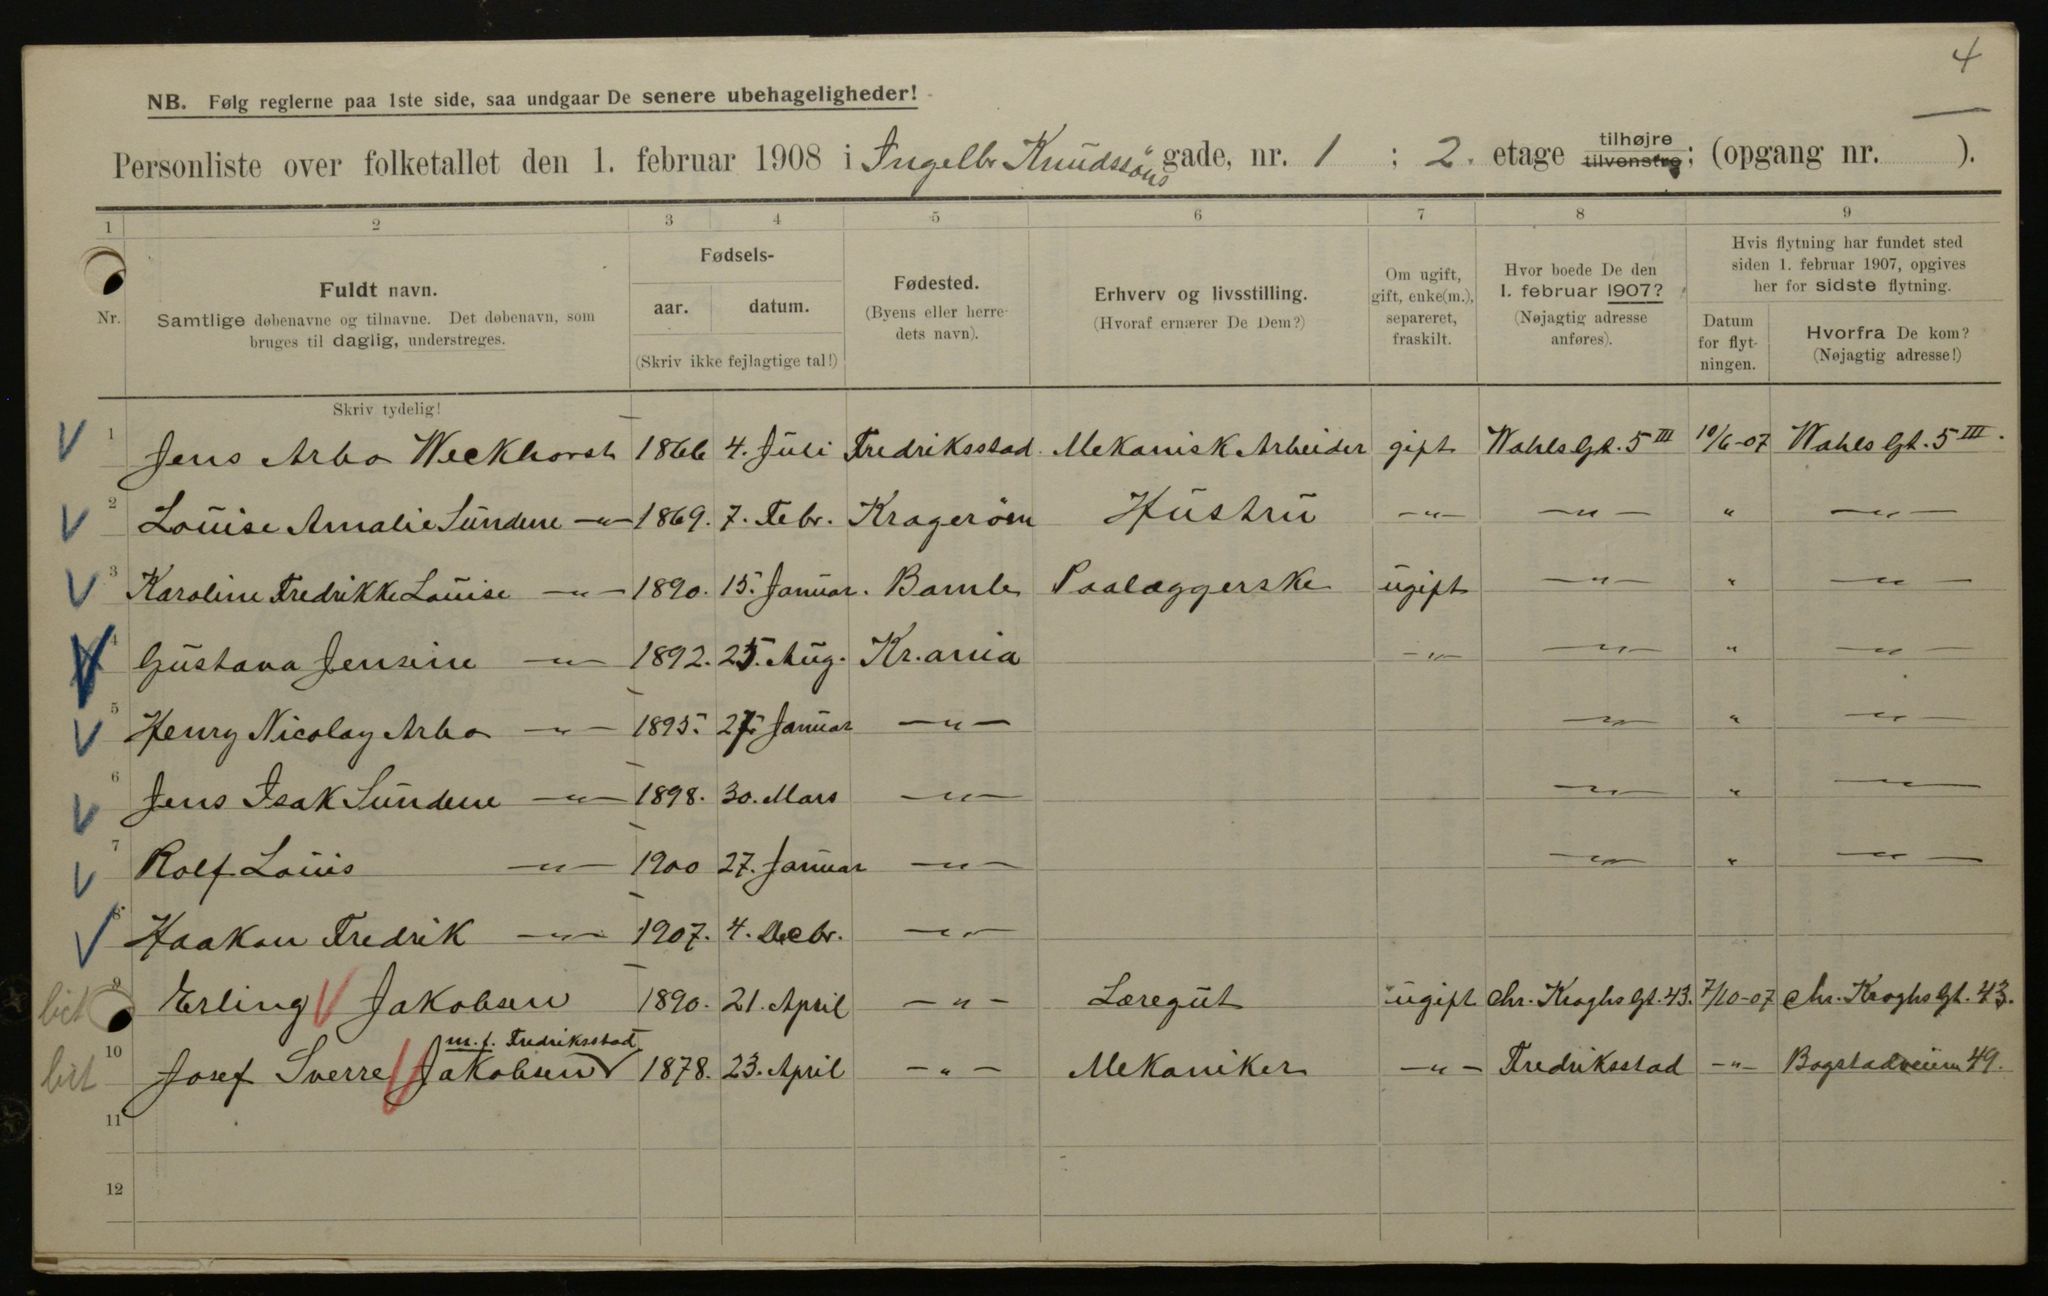 4
NB. Følg reglerne paa 1ste side, saa undgaar De senere ubehageligheder!
Personliste over folketallet den 1. februar 1908 i Ingelbr Knudssöns gade, nr. 1 ; 2. etage tilhøjre tilvenstre; (opgang nr. ).
1 2 3 4 5 6 7 8 9
Nr.
Fuldt navn.
Samtlige døbenavne og tilnavne. Det døbenavn, som
bruges til daglig, understreges.
Fødsels-
aar. datum.
(Skriv ikke fejlagtige tal!)
Fødested.
(Byens eller herre-
dets navn).
Erhverv og livsstilling.
(Hvoraf ernærer De Dem?)
Om ugift,
gift, enke(m.),
separeret,
fraskilt.
Hvor boede De den
1. februar 1907?
(Nøjagtig adresse
anføres).
Hvis flytning har fundet sted
siden 1. februar 1907, opgives
her for sidste flytning.
Datum
for flyt-
ningen.
Hvorfra De kom?
(Nøjagtig adresse!)
Skriv tydelig!
1 Jens Arbo Weckhorst 1866 4. Juli Fredriksstad. Mekanisk Arbeider gift Wahls Gt. 5 III 10/6-07 Wahls Gt. 5 III.
2 Louise Amalie Sundene -"- 1869. 7. Febr. Kragerøen Hustru -"- -"- " -"-
3 Karoline Fredrikke Louise -"- 1890. 15. Januar. Bamle Paalæggerske ugift -"- " -"-
4 Gustava Jensine -"- 1892. 25. Aug. Kr.ania -"- -"- " -"-
5 Henry Nicolay Arbo -"- 1895. 27. Januar -"- -"- " -"-
6 Jens Isak Sundene -"- 1898. 30. Mars -"- -"- " -"-
7 Rolf Louis -"- 1900 27. Januar -"- -"- " -"-
8 Haakon Fredrik -"- 1907. 4. Decbr. -"-
9 Erling Jakobsen 1890. 21. April -"- Læregut ugift Chr. Kroghs Gt. 43. 7/10-07 Chr. Kroghs Gt. 43.
m.f. Fredriksstad
10 Josef Sverre Jakobsen 1878. 23. April -"- Mekaniker -"- Fredriksstad -"- Bogstadveien 49.
11
12